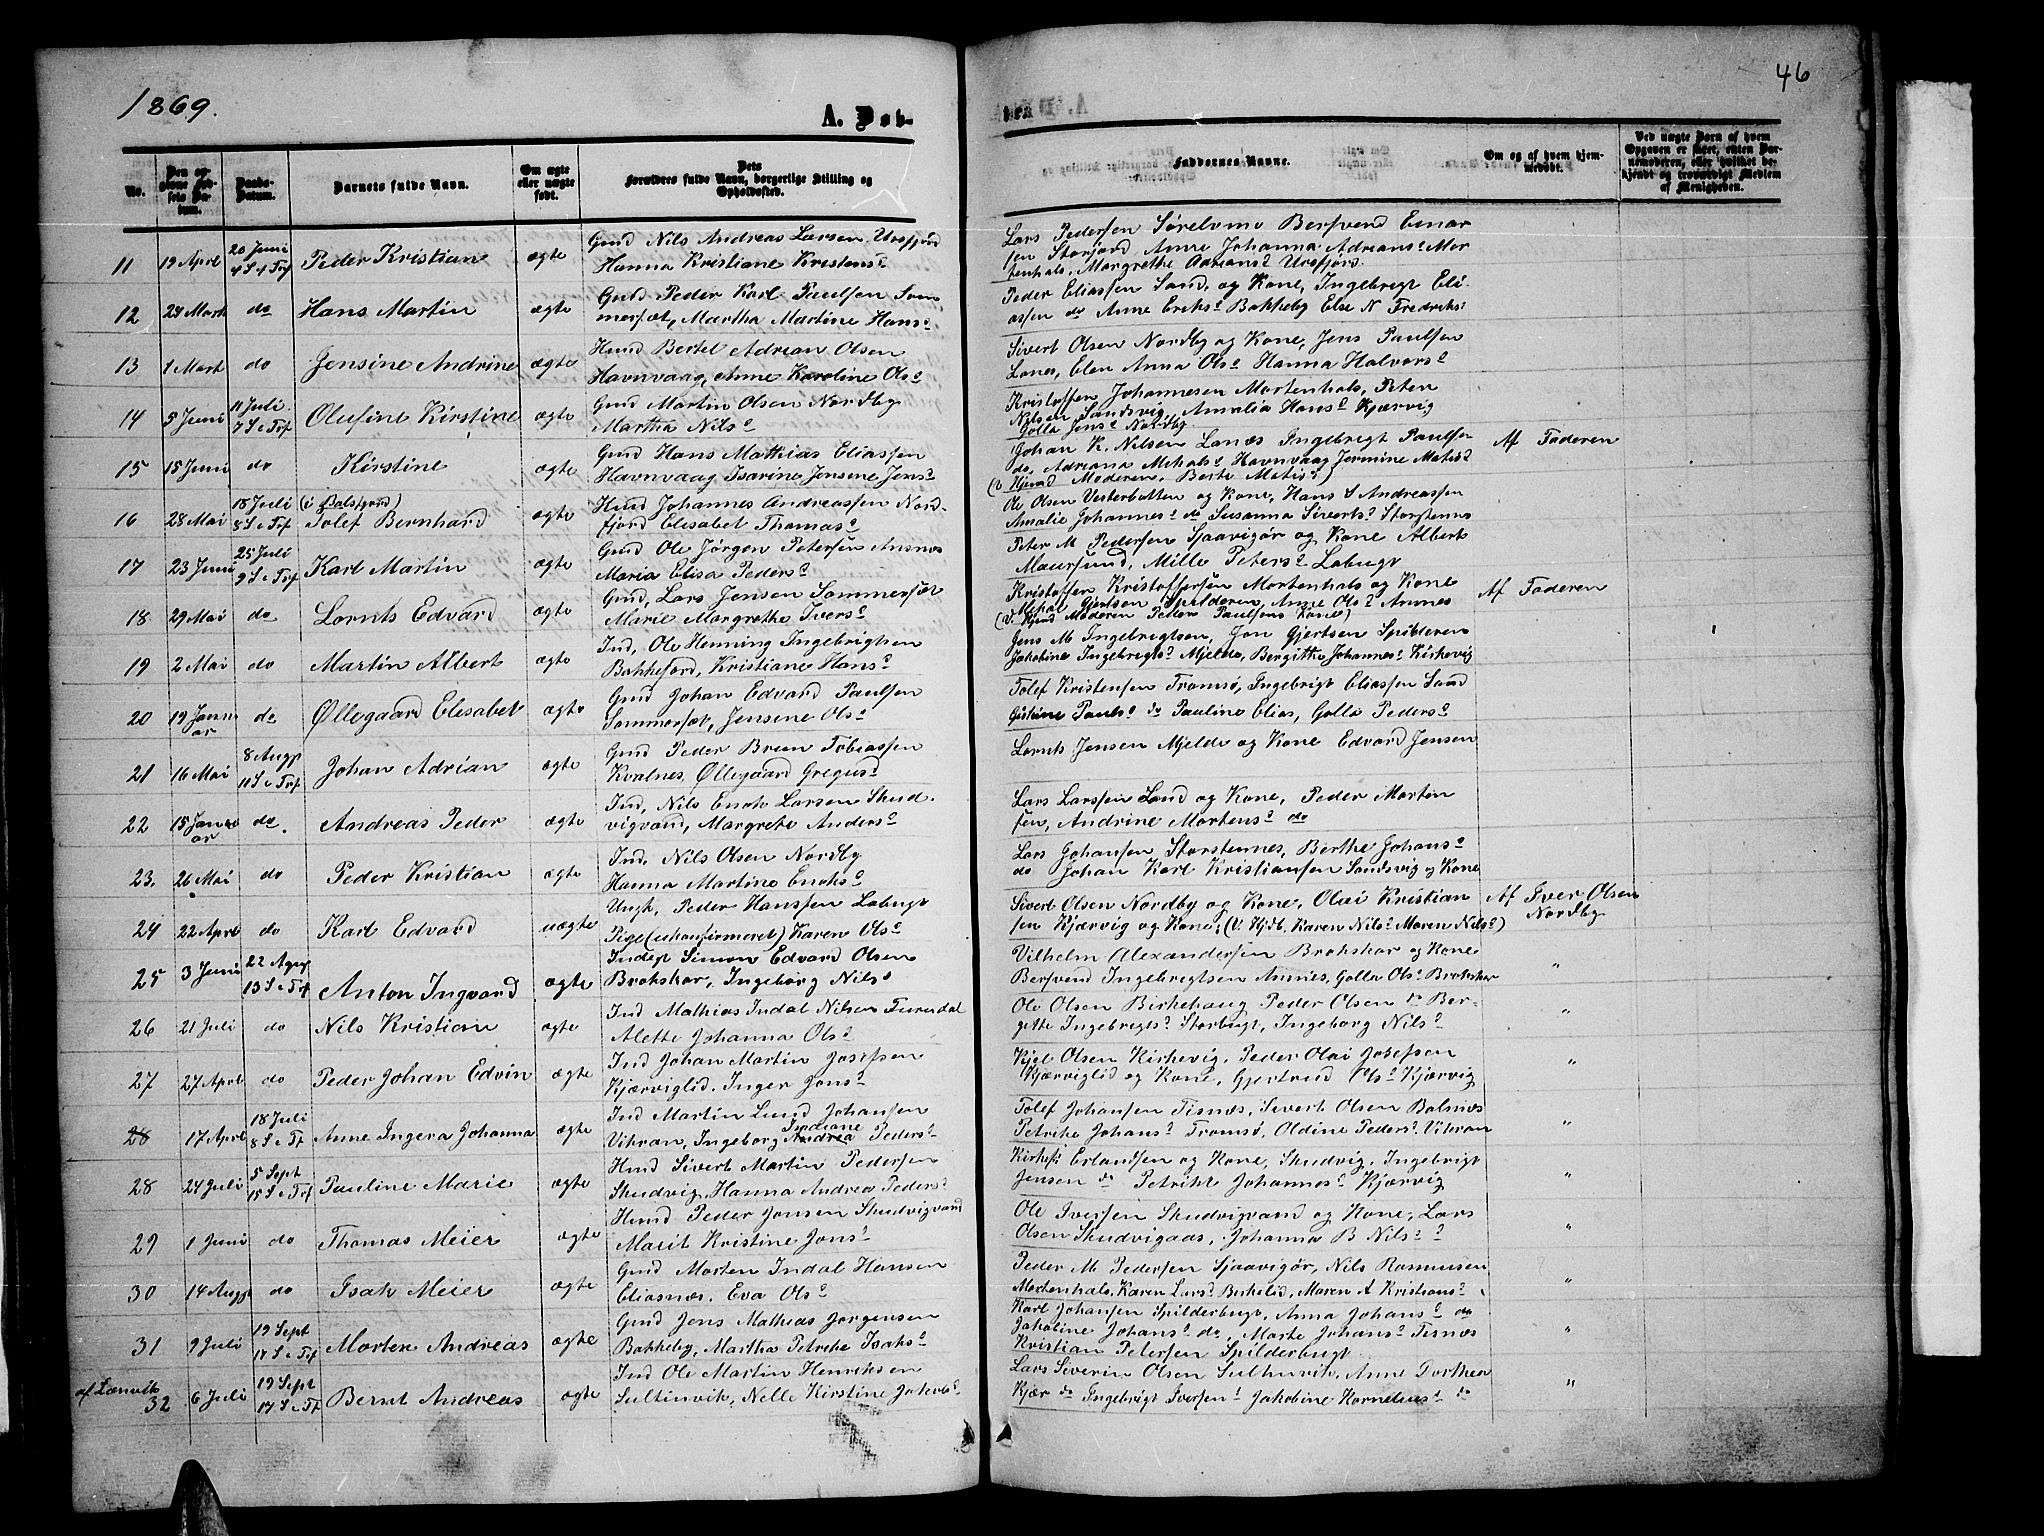 1869.
46
A. Døb-
bte
No.
Barnets fulde Navn.
Om ægte eller uægte født.
Forældres fulde Navn, borgerlige Stilling og Opholdssted.
Faddernes Navne.
Om og af hvem hjemmedøbt.
11 19 April 20 Juni 4 S e Trf Peder Kristian ægte Gmd Nils Andreas Larsen, Ursfjord
Hanna Kristiane Kristens?
Lars Pedersen Sørelvmo Bersvend Einar
sen Storjord, Anne Johanna Adrians? Mor
tenhals, Margrethe Adrians? Ursfjord
12 24 Mart do Hans Martin ægte Gmd Peder Karl Paulsen Som
mersæt, Martha Martine Hans?
Peder Eliassen Sand og Kone, Ingebrigt Eli
assen do Anne Eriks? Bakkeby Else N Fredriks?
13 1 Mart do Jensine Andrine ægte Hmd Bertel Adrian Olsen
Havnvaag, Anne Karoline Ols?
Sivert Olsen Nordby og Kone, Jens Paulsen
Lanes, Elen Anna Ols? Hanna Halvors?
14 5 Juni 11 Juli 7 S e Trf Olufine Kirstine ægte Gmd Martin Olsen Nordby
Martha Nils?
Kristoffer Johannesen Mortenhals, Peter
Nilsen Sandsvig, Amalia Hans? Kjærvig
Golla Jens? Nordby
15 15 Juni do Kirstine ægte Gmd Hans Mathias Eliassen
Havnvaag Isarine Jensine Jens?
Johan K. Nilsen Lanæs Ingebrigt Paulsen
do, Adriana Mikals? Havnvaag Jermine Matis?
(v Hjemd Moderen, Berte Matis?)
Af Faderen
16 28 Mai 18 Juli 8 S e Trf (i Balsfjord) Tolef Bernhard ægte Hmd Johannes Andreassen Nord-
fjord Elisabet Thomas?
Ole Olsen Vesterbotten og Kone, Hans S Andreassen
Amalie Johannes? do Susanna Siverts? Storstennes
17 23 Juni 25 Juli 9 S e Trf Karl Martin ægte Gmd Ole Jørgen Petersen Ansnes
Maria Elisa Peders?
Peter M Pedersen Sjaavigør og Kone Albert
Maursund, Mille Peters? Labugt
18 29 Mai do Lornts Edvard ægte Gmd, Lars Jensen Sommersæt
Marie Margrethe Ivers?
Kristoffer Kristoffersen Mortenhals og Kone
Mikal Gjertsen Spilderen, Anne Ols? Annes
(V. Hjemd Moderen Peder Paulsens Kone)
Af Faderen
19 2 Mai do Martin Albert ægte Ind, Ole Henning Ingebrigtsen
Bakkejord, Kristiane Hans?
Jens M Ingebrigtsen, Jon Gjertsen Spilderen
Jakobine Ingebrigts? Mjelde, Bergitte Johannes? Kirkevig
20 19 Januar do Øllegaard Elisabet ægte Gmd Johan Edvard Paulsen
Sommersæt, Jensine Ols?
Tolef Kristensen Tromsø, Ingebrigt Eliassen Sand
Gistine Pauls? do Pauline Elias, Golla Peders?
21 16 Mai 8 Augs 11 S e Trf Johan Adrian ægte Gmd Peder Brun Tobiassen
Kvalnes, Øllegaard Gregus?
Lornts Jensen Mjelde og Kone Edvard Jensen
22 15 Januar do. Andreas Peder ægte Ind, Nils Enok Larsen Skud.
vigvand, Margrete Anders?
Lars Larssen Sand og Kone, Peder Morten
sen, Andrine Mortens? do
23. 26 Mai do Peder Kristian ægte Ind, Nils Olsen Nordby
Hanna Martine Enoks?
Lars Johansen Storstennes, Berthe Johans?
do Johan Karl Kristiansen Sandsvig og Kone
24 22 April do Karl Edvard uægte Ungk, Peder Hanssen Labugt
Pige (ukonfirmeret) Karen Ols?
Sivert Olsen Nordby og Kone, Olai Kristian
sen Kjærvig og Kone, (V. Hjdb. Karen Nils? Maren Nils?)
Af Iver Olsen
Nordby
25 3 Juni 22 Augs 13 S e Trf Anton Ingvard ægte Inderst Simon Edvard Olsen
Brokskar, Ingeborg Nils?
Vilhelm Alexandersen Brokskar og Kone
Bersvend Ingebrigtsen Annes, Golla Ols? Brokskar
"
26 21 Juli do Nils Kristian ægte Ind Mathias Indal Nilsen Furudal
Alette Johanna Ols?
Ole Olsen Birkehaug Peder Olsen do Ber-
gitte Ingebrigts? Storbugt, Ingeborg Nils?
"
27 27 April do Peder Johan Edvin ægte Ind Johan Martin Josefsen
Kjærviglid, Inger Jons?
Kjel Olsen Kirkevig, Peder Olai Josefsen
Kjærviglid og Kone, Gjertrud Ols? Kjærvig
"
28 17 April 18 Juli 8 S e Tf Anne Ingera Johanna ægte Ind Martin Lund Johansen
Vikran, Ingeborg Andrea Indiane Peders?
Tolef Johansen Tisnæs, Sivert Olsen Balsnæs
Petrike Johans? Tromsø, Oldine Peders? Vikran
"
28 24 Juli 5 Sept 15 S e Trf Pauline Marie ægte Hmd Sivert Martin Pedersen
Skudvig, Hanna Andrea Peders?
Kirkefs Erlandsen og Kone, Skudvig, Ingebrigt
Jensen do Petrike Johannes? Kjærvig
"
29 1 Juni do Thomas Meier ægte Hmd Peder Jonsen Skudvigvand
Marit Kristine Jons?
Ole Iversen Skudvigvand og Kone, Lars
Olsen Skudvigaas, Johanna B Nils?
"
30 14 Augs do Isak Meier ægte Gmd Morten Indal Hansen
Eliasnæs, Eva Ols?
Peder M Pedersen Sjaavigør, Nils Rasmusen
Mortenhals, Karen Lars? Birkelid, Maren A Kristians?
"
31 9 Juli 19 Sept 17 S e Trf Morten Andreas ægte Gmd Jens Mathias Jørgensen
Bakkeby, Martha Petrike Isaks?
Karl Johansen Spilderbugt, Anna Johans? do
Jakobine Johans? do, Marte Johans? Tisnæs
Kristian Petersen Spilderbugt
"
af Lenvik
32 6 Juli 19 Sept 17 S e Tf Bernt Andreas ægte Ind Ole Martin Henriksen
Sultinvik, Nelle Kirstine Jakobs?
Lars Severin Olsen Sultinvik, Anne Dorthea
Kjær do Ingebrigt Iversen? Jakobine Kornelius? do
"